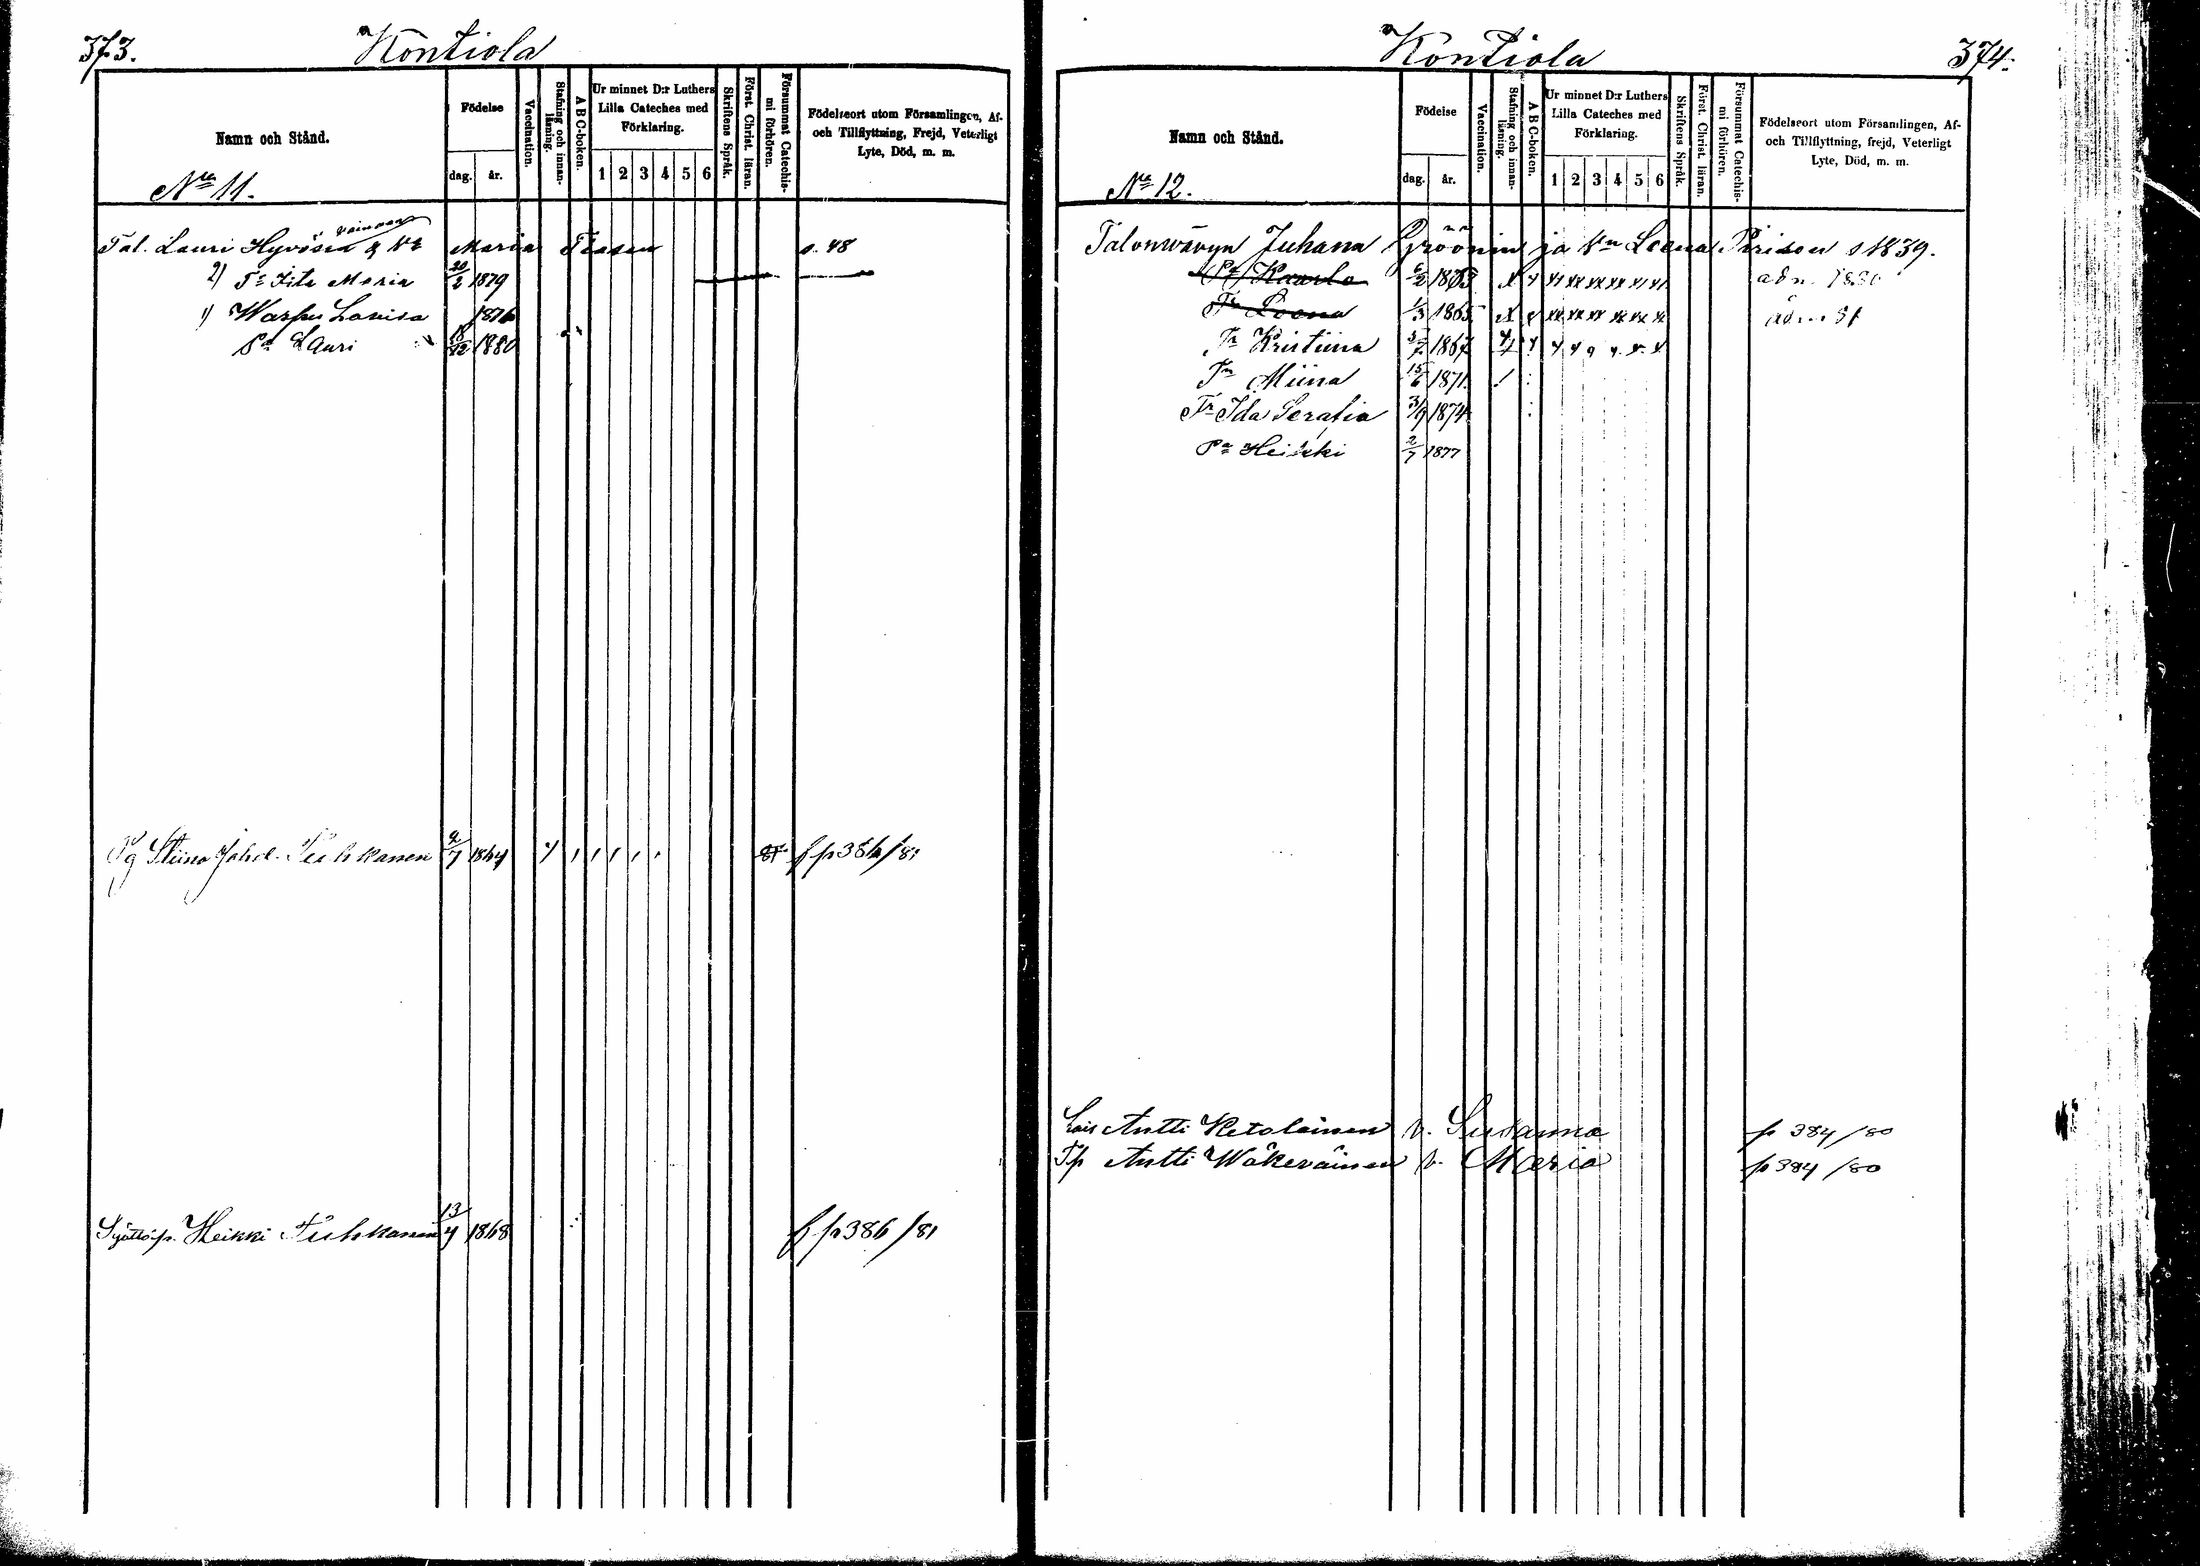 373.
Kontiola
Namn och Stånd.
Födelse
dag.
år.
Vaccination.
Stafning och innanläsning.
A B C-boken.
Ur minnet D:r Luthers Lilla Cateches med Förklaring.
1 2 3 4 5 6
Skriftens Språk.
Först. Christ. läran.
Försummat Catechismi förhören.
Födelseort utom Församlingen, Af-
och Tillflyttning, Frejd, Veterligt
Lyte, Död, m. m.
No 11.
Tal. Lauri Hyvösen & Vo Maria s. 48
2) Tr Fita Maria 20/2 1879
1) Warpu Lovisa 1876
Pa Lauri 18/12 1880
Stiina Johd. Tuhkanen 2/7 1864 81 f p 386/81
Syöttöp. Heikki Tuhkanen 13/4 1868 f p 386/81
Kontiola
374.
Namn och Stånd.
Födelse
dag.
år.
Vaccination.
Stafning och innanläsning.
A B C-boken.
Ur minnet D:r Luthers Lilla Cateches med Förklaring.
1 2 3 4 5 6
Skriftens Språk.
Först. Christ. läran.
Försummat Catechismi förhören.
Födelseort utom Församlingen, Af-
och Tillflyttning, frejd, Veterligt
Lyte, Död, m. m.
No 12.
Talonwävyn Juhana Groonin ja Vn Leena s 1839.
Pa Kaarlo 6/2 1863
Tr Leena 1/3 1865
Tr Kristiina 1867
Tr Miina 15/6 1871
Tr Ida Serafia 3/9 1874
Pa Heikki 2/7 1877
Lois Antti Ketolainen v. Susanna p 384/80
Tp Antti Wäkeväinen v. Maria p 384/80